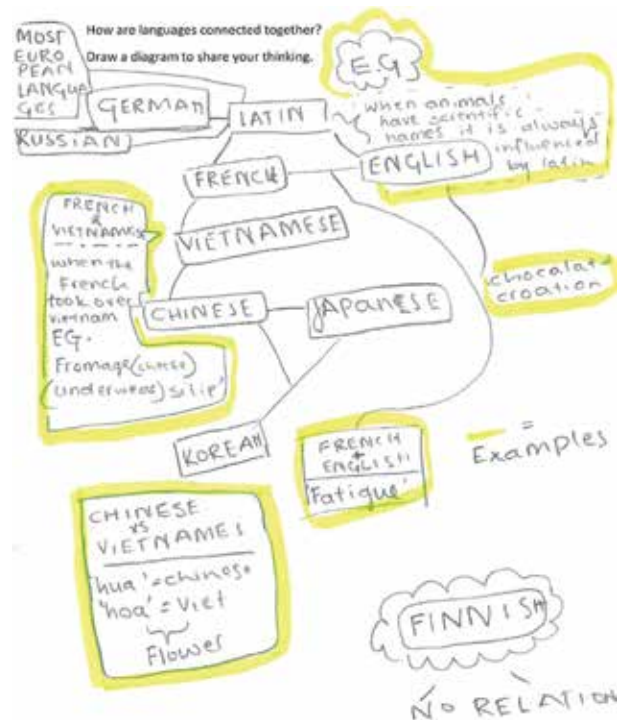 How are languages connected together?
Draw a diagram to share your thinking.
MOST
EURO
PEAN
LANGUA
GES
GERMAN
RUSSIAN
LATIN
E.G
when animals
have scientific
names it is always
influenced
by latin
ENGLISH
FRENCH
FRENCH
&
VIETNAMESE
when the
French
took over
vietnam
EG.
Fromage (cheese)
(underwear) 'slip'
VIETNAMESE
CHINESE
JAPANESE
'chocalat'
croation
KOREAN
FRENCH
+
ENGLISH
'Fatigue'
=
Examples
CHINESE
vs
VIETNAMES
'hua' = chinese
'hoa' = Viet
Flower
FINNISH
NO RELATION